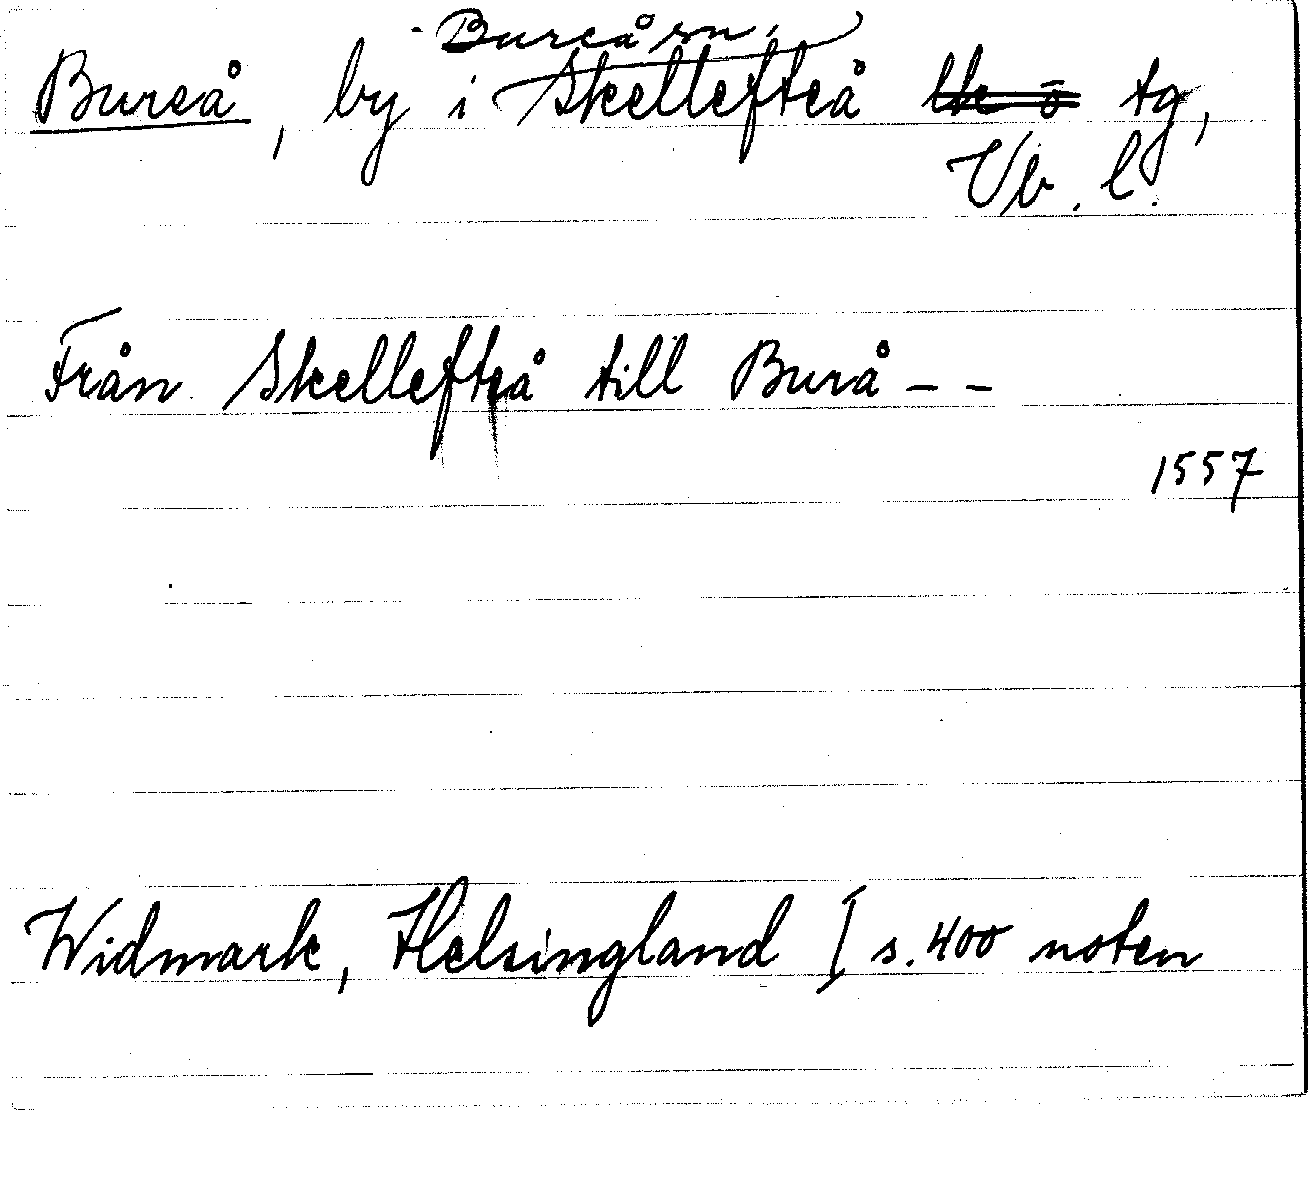 Bureå sn,
Bureå, by i Skellefteå tg,
Vb. l.
Från Skellefteå till Burå - -
1557
Widmark, Helsingland I s. 400 noten